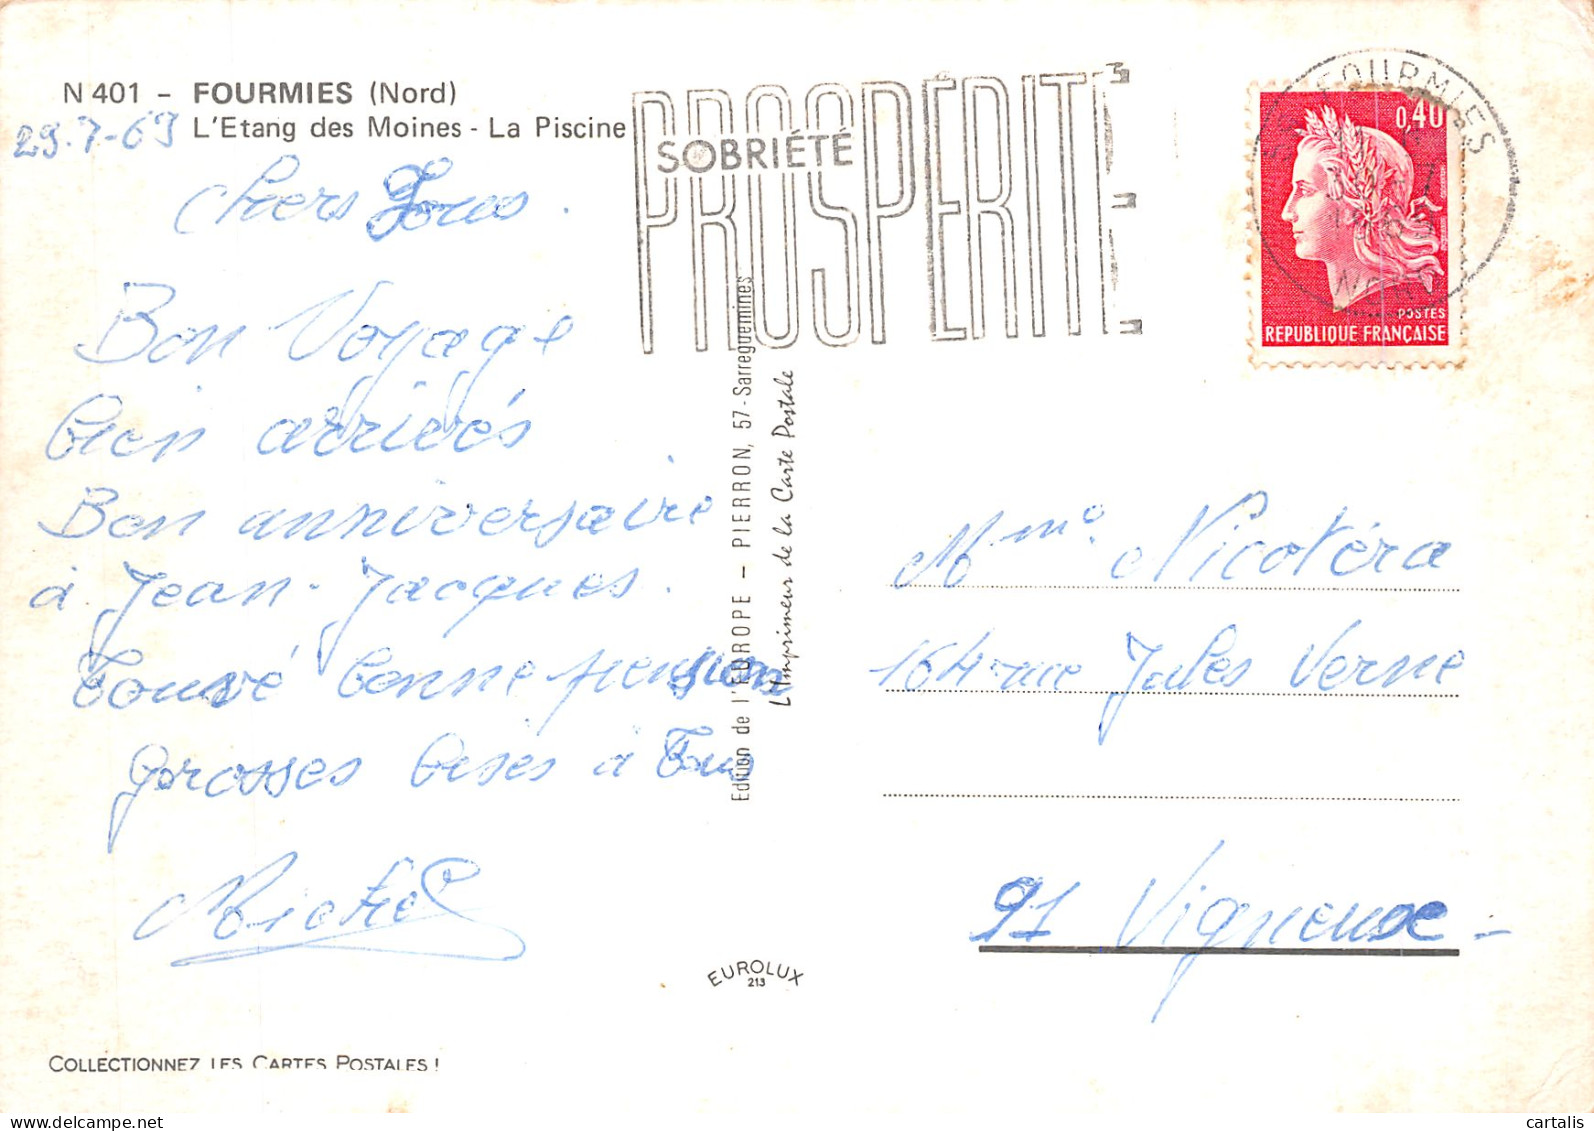 N 401 - FOURMIES (Nord)
L'Etang des Moines - La Piscine
29-7-69
chers Tous.
Bon Voyage
bien arrivés
Bon anniversaire
à Jean-Jacques.
Trouvé bonne pension
Grosses bises à Tous
Michel
COLLECTIONNEZ LES CARTES POSTALES !
PROSPÉRITÉ
SOBRIÉTÉ
Edition de l'EUROPE - PIERRON, 57 - Sarreguemines
L'Imprimeur de la Carte Postale
EUROLUX
213
FOURMIES
NORD
0,40
POSTES
REPUBLIQUE FRANÇAISE
Mme Nicotéra
164 rue Jules Verne
91 Vigneux -
cartalis